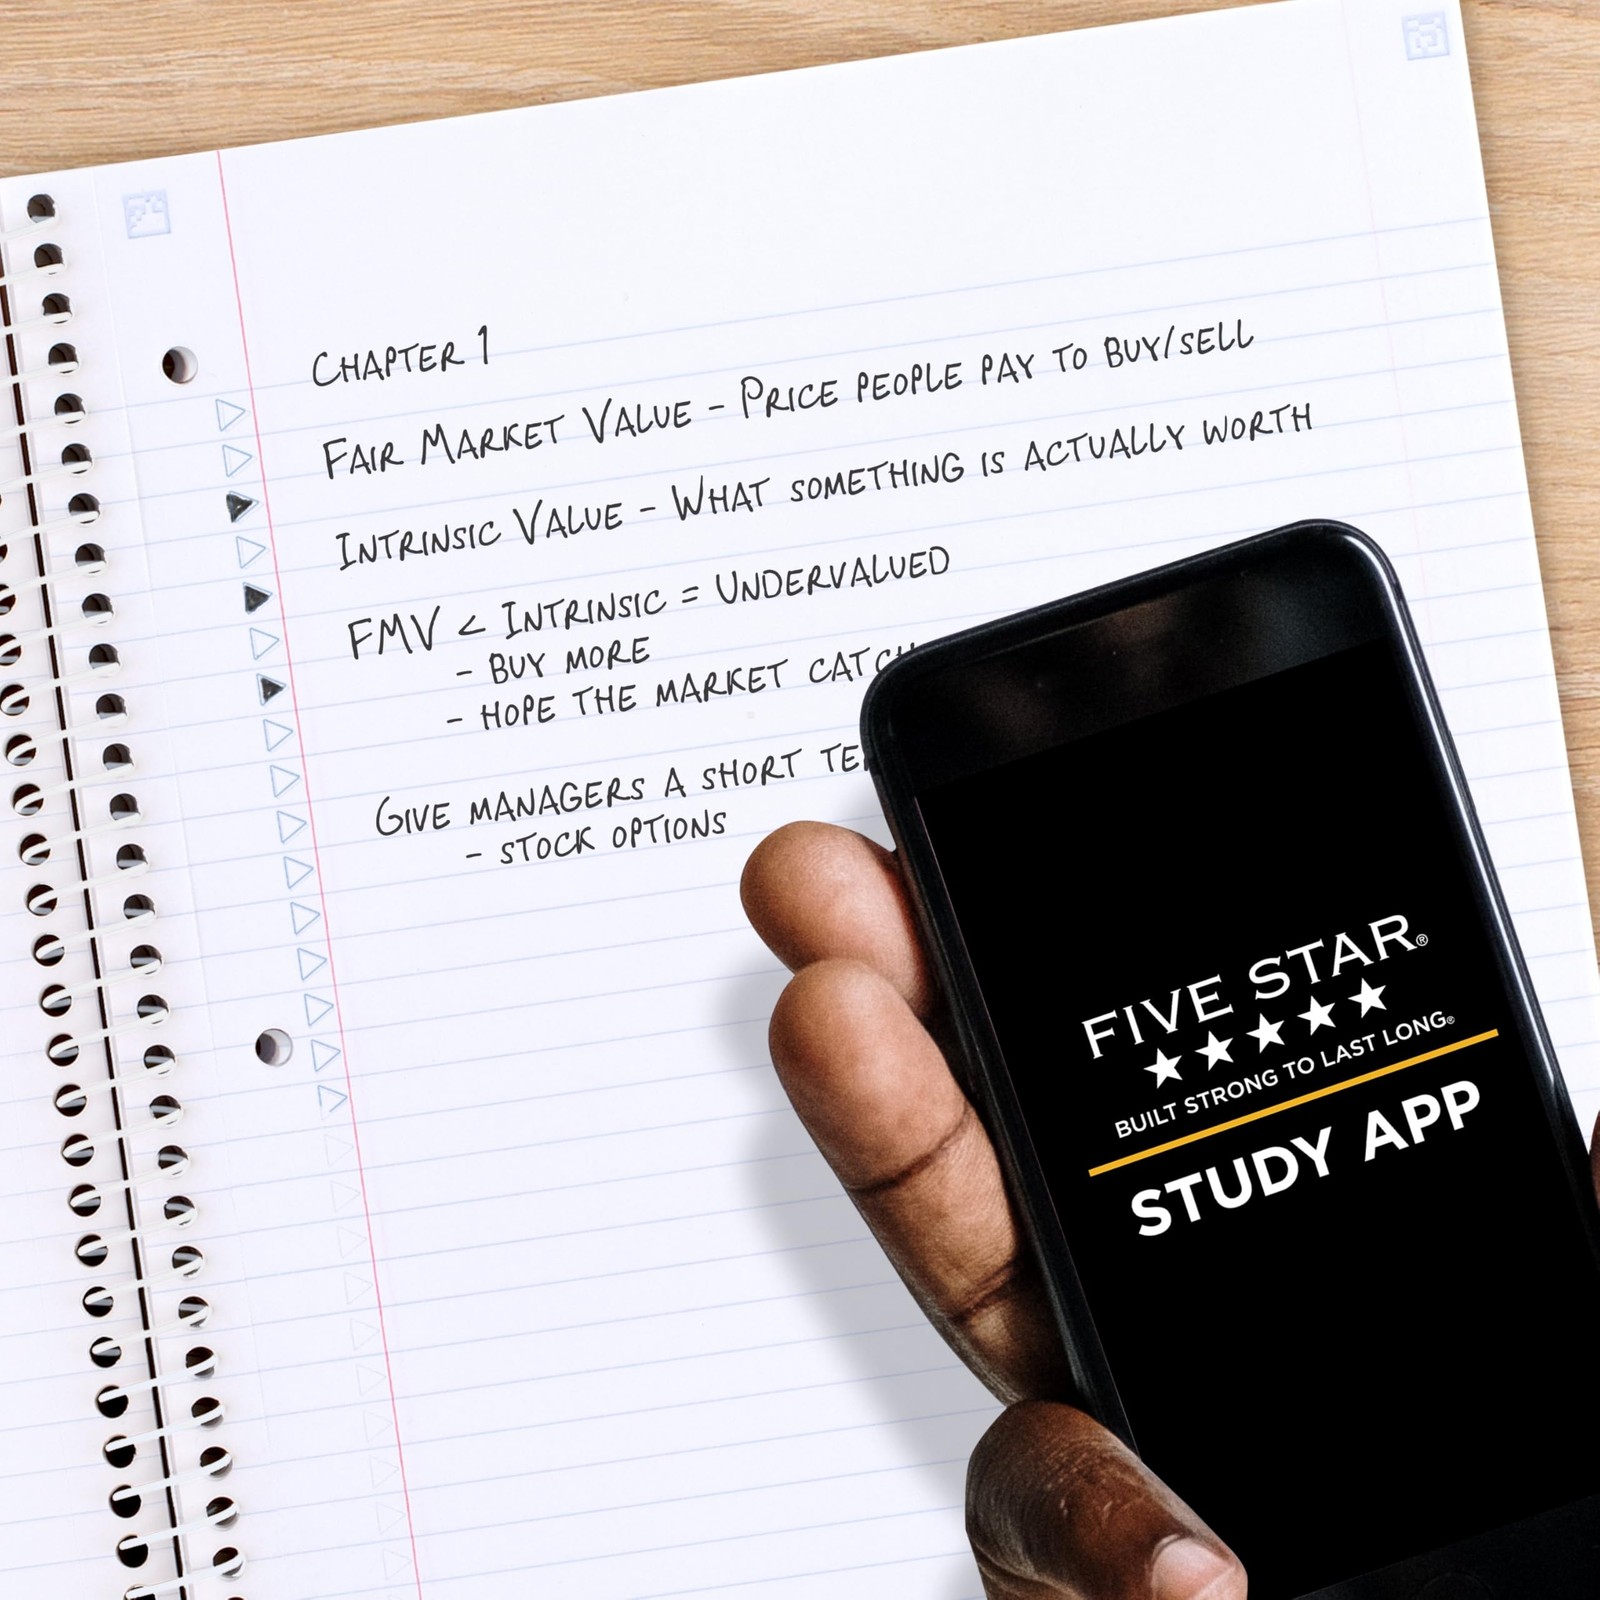 CHAPTER 1
FAIR MARKET VALUE - PRICE PEOPLE PAY TO BUY/SELL
INTRINSIC VALUE - WHAT SOMETHING IS ACTUALLY WORTH
FMV < INTRINSIC = UNDERVALUED
- BUY MORE
- HOPE THE MARKET
GIVE MANAGERS A SHORT
- STOCK OPTIONS
FIVE STAR®
★★★★★
BUILT STRONG TO LAST LONG®
STUDY APP